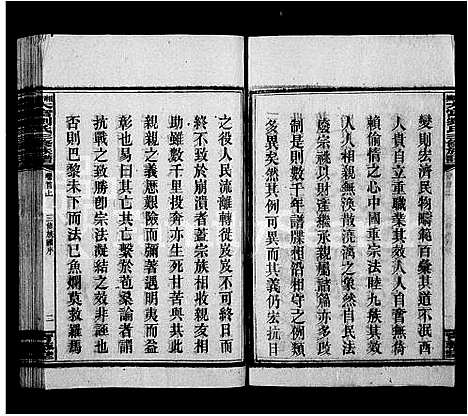 變則宏濟民物疇範百彙其道不泯西
人人貴自立重職業其效人人奮無倚
賴偷情之心中國重宗法睦九族其效
人人相親無渙散澆漓之象然自民法
廢宗祧以財產繼承親屬諸篇亦多改
制是則數千年譜牒相沿相守之例類
多異矣然其例可異而其義仍宏抗日
之役人民流離轉徙歲無寧日而
終不致於崩潰者蓋宗族相收親友相
助雖數千里投奔亦生死甘苦與共此
親親之義歷艱險而彌著遇明夷而益
彰也易曰其亡其亡繫於苞桑論者謂
抗戰之致勝卽宗法凝結之效非誣也
否則巴黎未下而法已魚爛莫救羅馬
卷首上
三修族譜序
二